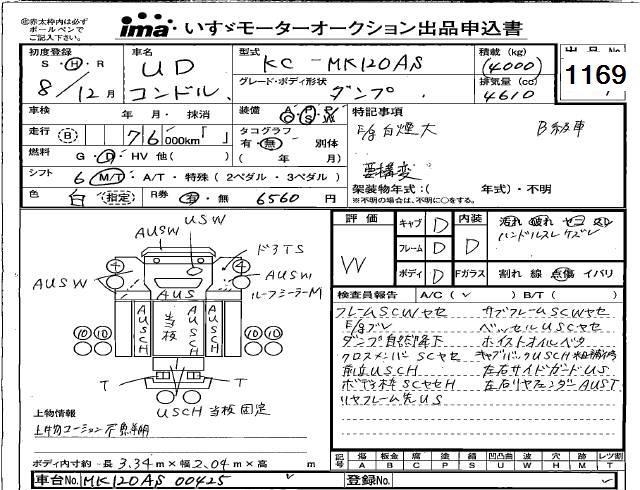 ㊟赤太枠内は必ず
ボールペンで
ご記入下さい。
ima いすゞモーターオークション出品申込書
初度登録 S・H・R 8/12月
車名 UD コンドル
型式 KC-MK120AS
グレード・ボディ形状 ダンプ
積載(kg) (4000)
排気量(cc) 4610
出品No.
1169
車検 年 月・ 抹消
装備 A P A P C S W
走行 (B) 76 000km「 」
タコグラフ 有・無 別体 ( 年 月)
燃料 G・D・HV 他( )
シフト 6 M/T・A/T・特殊(2ペダル・3ペダル)
色 白 (指定) R券 有・無 6560 円
特記事項
E/g 白煙大 B級車
要構変
架装物年式:( 年式)・不明
※不明の場合は、不明に○をする。
評価 W
キャブ D
フレーム D
ボディ D
内装 D
汚れ 破れ
ハンドルスレ ケズレ
Fガラス 割れ 線 点傷 イバリ
検査員報告 A/C( ✓ ) B/T( )
フレームSCWヤセ サブフレームSCWヤセ
E/gブレ ベッセルUSCWヤセ
ダンプ自然降下 ホイストオイルベタ
クロスメンバーSCヤセ キャブバックUSCH
USCH 左右サイドガードUS
SCヤセH 左右リヤフェンダーAUST
リヤフレーム先US
USW
AUSW
ドアTS
4
4
AUSW
AUSW
ルーフミラーM
AUS
AUSCH
当板
USCH
AUSCH
10 10
10 10
T
T
USCH 当板固定
上物情報
上物コーション不鮮明
ボディ内寸約 長 3.34m×幅 2.04m×高 m
記号 傷 A 板金 B 腐 C 塗 P 錆 S 凹凸曲 U 波 W 穴 H 跡 M レツ割 T
車台No. MK120AS 00425 ✓
登録No. ✓